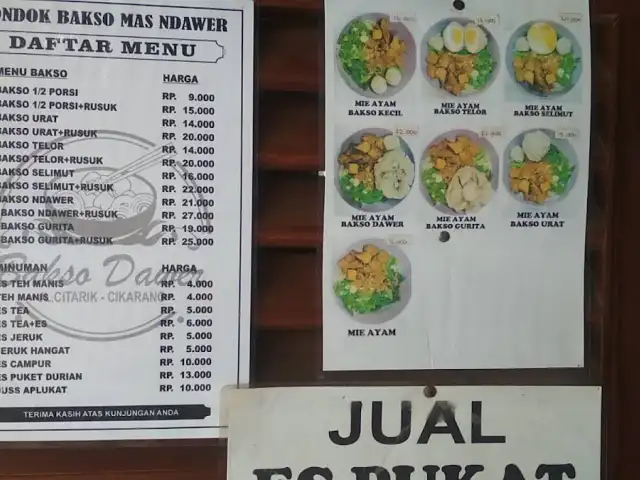 ONDOK BAKSO MAS NDAWER
DAFTAR MENU
MENU BAKSO HARGA
BAKSO 1/2 PORSI RP. 9.000
BAKSO 1/2 PORSI+RUSUK RP. 15.000
BAKSO URAT RP. 14.000
BAKSO URAT+RUSUK RP. 20.000
BAKSO TELOR RP. 14.000
BAKSO TELOR+RUSUK RP. 20.000
BAKSO SELIMUT RP. 16.000
BAKSO SELIMUT+RUSUK RP. 22.000
BAKSO NDAWER RP. 21.000
BAKSO NDAWER+RUSUK RP. 27.000
BAKSO GURITA RP. 19.000
BAKSO GURITA+RUSUK RP. 25.000
Bakso Dawer
CITARIK - CIKARANG
MINUMAN HARGA
ES TEH MANIS RP. 4.000
TEH MANIS RP. 4.000
ES TEA RP. 5.000
ES TEA+ES RP. 6.000
ES JERUK RP. 5.000
JERUK HANGAT RP. 5.000
ES CAMPUR RP. 10.000
ES PUKET DURIAN RP. 13.000
JUSS APLUKAT RP. 10.000
TERIMA KASIH ATAS KUNJUNGAN ANDA
MIE AYAM
BAKSO KECIL
MIE AYAM
BAKSO TELOR
MIE AYAM
BAKSO SELIMUT
MIE AYAM
BAKSO DAWER
MIE AYAM
BAKSO GURITA
MIE AYAM
BAKSO URAT
MIE AYAM
JUAL
ES PUKAT